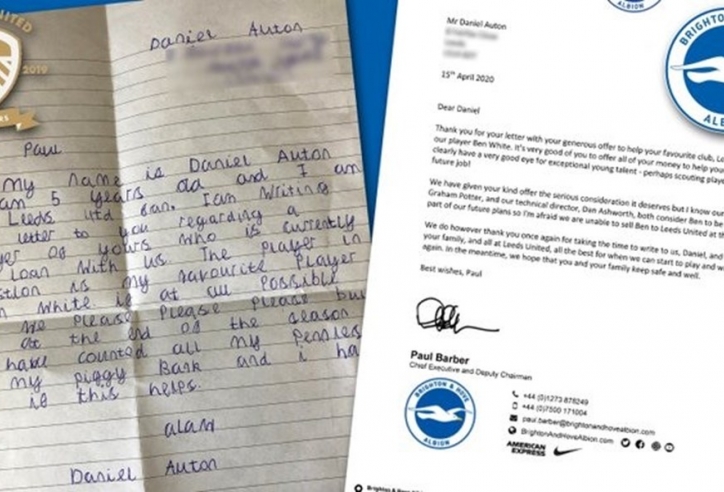 UNITED
2019
Daniel Auton
Paul
my name is Daniel Auton
am 5 years old and I am
Leeds utd fan. I am Writing
letter to you regarding a
yer of yours who is currently
loan with us. The player in
stion is my favourite Player
White. is at all Possible
we Please Please Please bu
at the end of the season
have counted all my Pennies
my piggy Bank and i ha
if this helps.
alaw
Daniel Auton
BRIGHTON
ALB
Mr Daniel Auton
15th April 2020
Dear Daniel
Thank you for your letter with your generous offer to help your favourite club, Le
our player Ben White. It's very good of you to offer all of your money to help your
clearly have a very good eye for exceptional young talent - perhaps scouting playe
future job!
We have given your kind offer the serious consideration it deserves but I know our
Graham Potter, and our technical director, Dan Ashworth, both consider Ben to be
part of our future plans so I'm afraid we are unable to sell Ben to Leeds United at th
We do however thank you once again for taking the time to write to us, Daniel, and
your family, and all at Leeds United, all the best for when we can start to play and w
again. In the meantime, we hope that you and your family keep safe and well.
Best wishes, Paul
Paul Barber
Chief Executive and Deputy Chairman
BRIGHTON & HOVE
ALBION
+44 (0)1273 878249
+44 (0)7500 171004
paul.barber@brightonandhovealbion.com
BrightonAndHoveAlbion.com
AMERICAN
EXPRESS
Brighton &